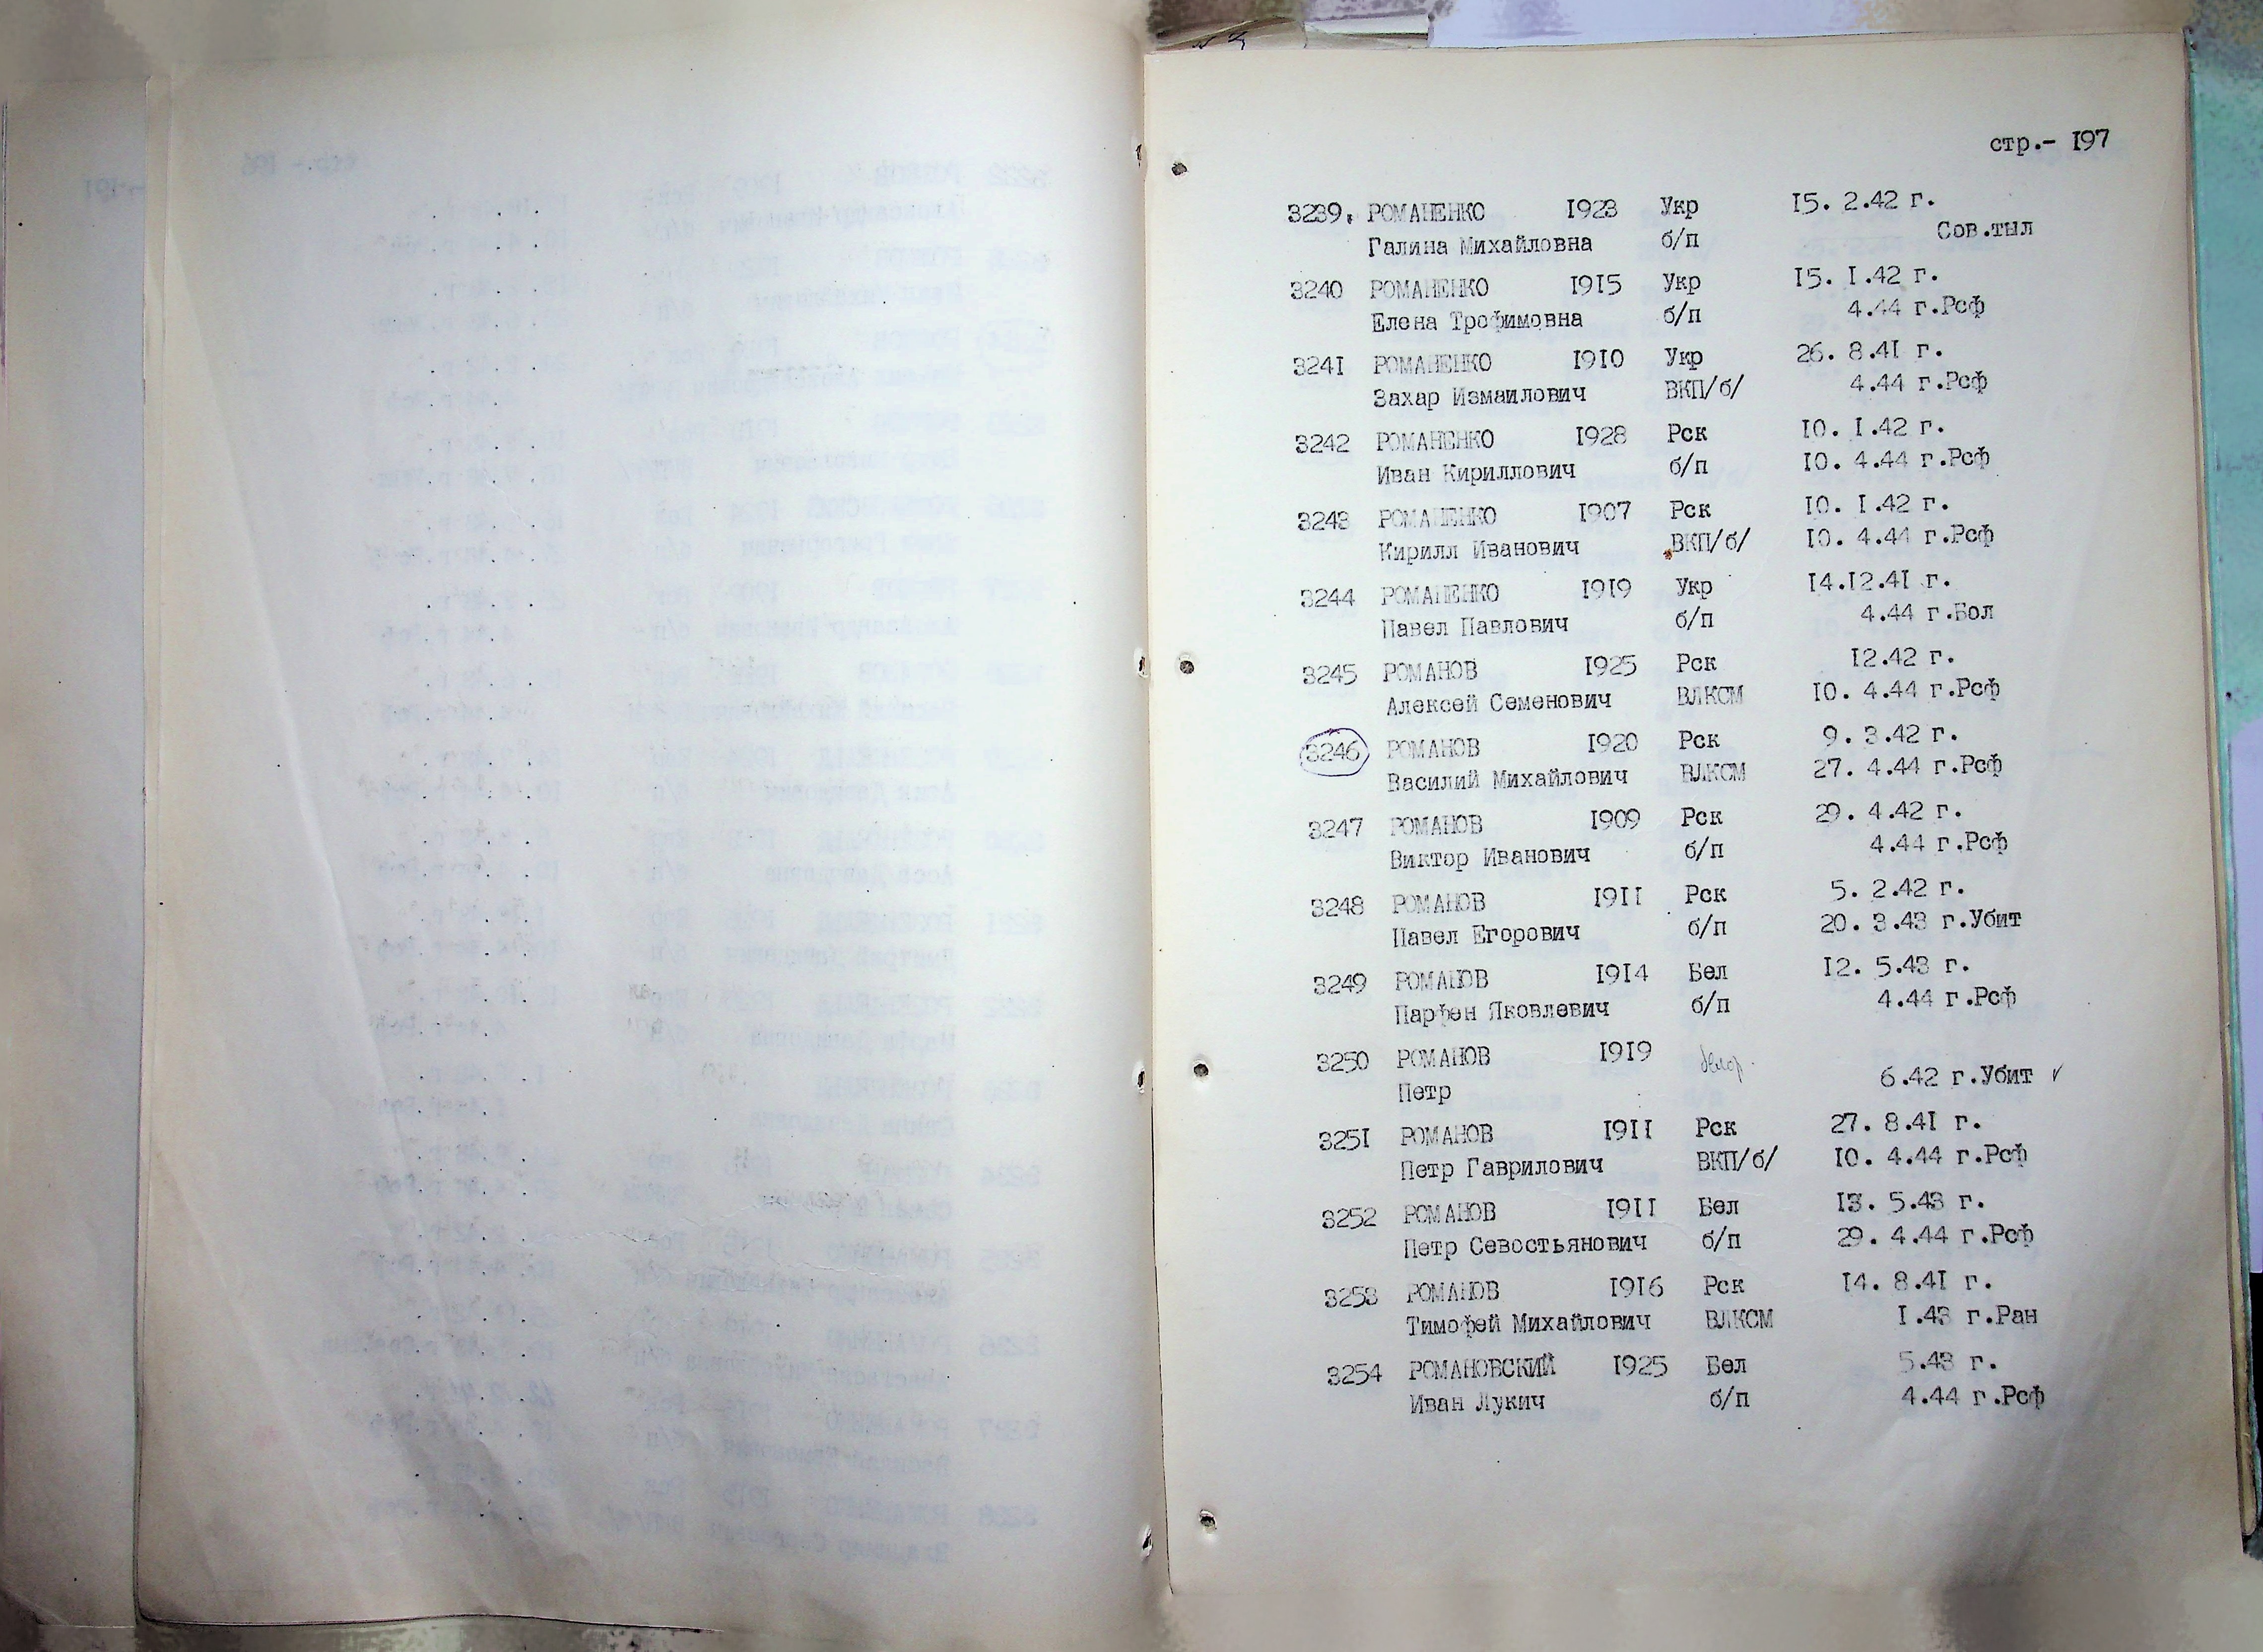 стр.- 197
3239. РОМАНЕНКО 1923 Укр 15. 2.42 г.
Галина Михайловна б/п Сов.тыл
3240 РОМАНЕНКО 1915 Укр 15. 1.42 г.
Елена Трофимовна б/п 4.44 г.Рсф
3241 РОМАНЕНКО 1910 Укр 26. 8.41 г.
Захар Измаилович ВКП/б/ 4.44 г.Рсф
3242 РОМАНЕНКО 1928 Рск 10. 1.42 г.
Иван Кириллович б/п 10. 4.44 г.Рсф
3243 РОМАНЕНКО 1907 Рск 10. 1.42 г.
Кирилл Иванович ВКП/б/ 10. 4.44 г.Рсф
3244 РОМАНЕНКО 1919 Укр 14.12.41 г.
Павел Павлович б/п 4.44 г.Бол
3245 РОМАНОВ 1925 Рск 12.42 г.
Алексей Семенович ВЛКСМ 10. 4.44 г.Рсф
3246 РОМАНОВ 1920 Рск 9. 3.42 г.
Василий Михайлович ВЛКСМ 27. 4.44 г.Рсф
3247 РОМАНОВ 1909 Рск 29. 4.42 г.
Виктор Иванович б/п 4.44 г.Рсф
3248 РОМАНОВ 1911 Рск 5. 2.42 г.
Павел Егорович б/п 20. 3.43 г.Убит
3249 РОМАНОВ 1914 Бел 12. 5.43 г.
Парфен Яковлевич б/п 4.44 г.Рсф
3250 РОМАНОВ 1919
Петр 6.42 г.Убит ✓
3251 РОМАНОВ 1911 Рск 27. 8.41 г.
Петр Гаврилович ВКП/б/ 10. 4.44 г.Рсф
3252 РОМАНОВ 1911 Бел 13. 5.43 г.
Петр Севостьянович б/п 29. 4.44 г.Рсф
3253 РОМАНОВ 1916 Рск 14. 8.41 г.
Тимофей Михайлович ВЛКСМ 1.43 г.Ран
3254 РОМАНОВСКИЙ 1925 Бел 5.43 г.
Иван Лукич б/п 4.44 г.Рсф